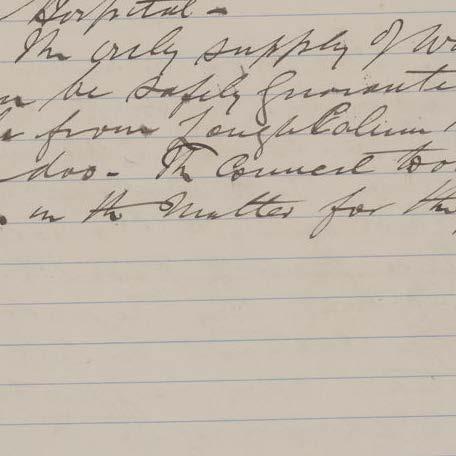 Hospital -
The only supply of W
n be safely Guarante
from Lough
doo - The Council too
in the Matter for th